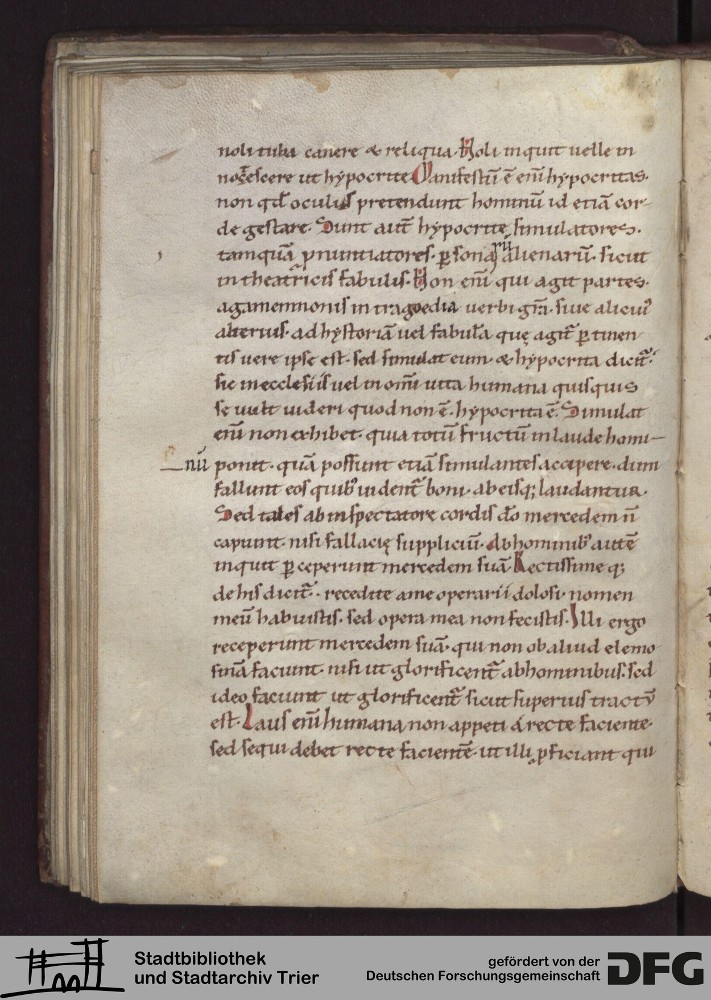 noli tuba canere & reliqua. Noli inquit uelle in
notescere ut hypocrite. Manifestũ ẽ enĩ hypocritas.
non qđ oculis pretendunt hominũ id etiã cor-
de gestare. Sunt aut̃ hypocritę simulatores.
tamquã pnuntiatores. p̱sonarũ alienarũ. sicut
in theatricis fabulis. Non enĩ qui agit partes.
agamemnonis in tragoedia uerbi gr̃a. siue alicui᾽
alterius. ad hystoriã uel fabulã quę agit̃ p̱tinen
tis uere ipse est. sed simulat eum. & hypocrita dicit̃.
sic in ecclesiis uel in omĩ uita humana quisquis
se uult uideri quod non ẽ. hypocrita ẽ. Simulat
enĩ non exhibet. quia totũ fructũ in laude homi-
nũ ponit. quã possunt etiã simulantes accipere. dum
fallunt eos quib᾽ uident̃ boni. ab eisq; laudantur.
Sed tales ab inspectatore cordis dõ mercedem ñ
capiunt. nisi fallacię suppliciũ. Ab hominib᾽ autẽ
inquit p̱ceperunt mercedem suã. Rectissime q;
de his dicit̃. recedite a me operarii dolosi. nomen
meũ habuistis. sed opera mea non fecistis. Illi ergo
receperunt mercedem suã. qui non ob aliud elemo
sinã faciunt. nisi ut glorificent̃ ab hominibus. sed
ideo faciunt ut glorificent̃ sicut superius tractũ
est. Laus enĩ humana non appeti a recte faciente.
sed sequi debet recte facientẽ. ut illi pficiant qui
Stadtbibliothek
und Stadtarchiv Trier
gefördert von der
Deutschen Forschungsgemeinschaft
DFG